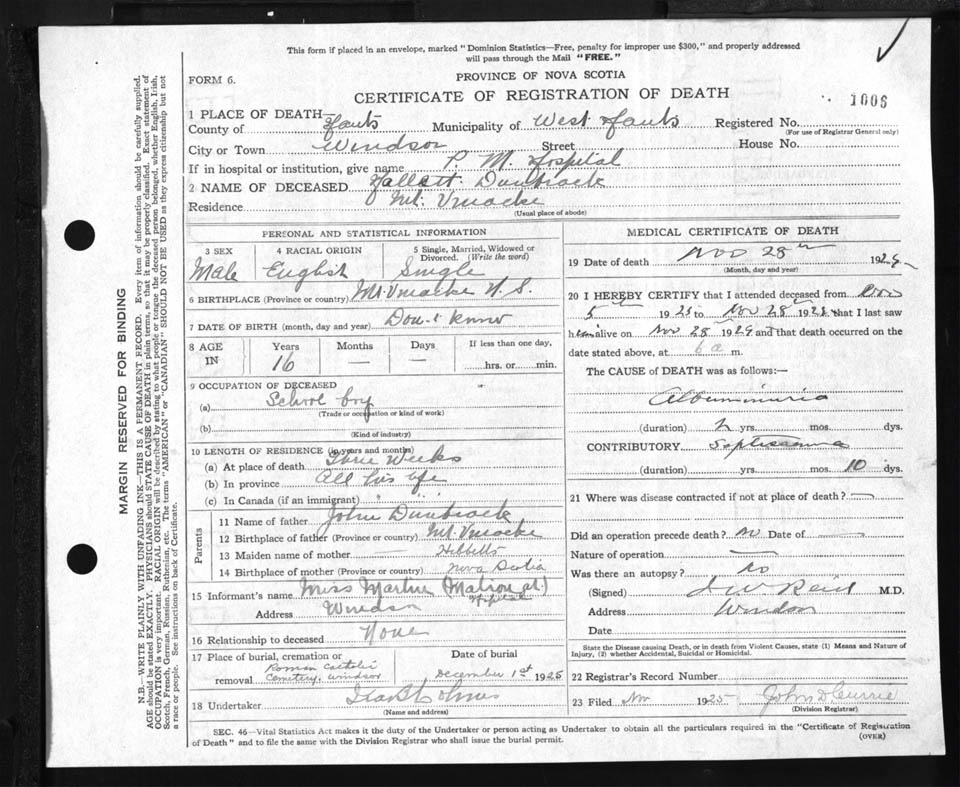 This form if placed in an envelope, marked "Dominion Statistics—Free, penalty for improper use $300," and properly addressed
will pass through the Mail "FREE."
FORM 6.
PROVINCE OF NOVA SCOTIA
CERTIFICATE OF REGISTRATION OF DEATH
1006
1 PLACE OF DEATH
County of Hants Municipality of West Hants Registered No.
(For use of Registrar General only)
City or Town Windsor Street House No.
If in hospital or institution, give name P. M. Hospital
2 NAME OF DECEASED Dunbrack
Residence Mt. Uniacke
(Usual place of abode)
PERSONAL AND STATISTICAL INFORMATION
3 SEX
Male
4 RACIAL ORIGIN
English
5 Single, Married, Widowed or Divorced. (Write the word)
Single
6 BIRTHPLACE (Province or country) Mt Uniacke N. S.
7 DATE OF BIRTH (month, day and year) Don't know
8 AGE IN Years Months Days If less than one day,
16 — — hrs. or min.
9 OCCUPATION OF DECEASED
(a) School boy
(Trade or occupation or kind of work)
(b)
(Kind of industry)
10 LENGTH OF RESIDENCE (in years and months)
(a) At place of death Three Weeks
(b) In province All his life
(c) In Canada (if an immigrant) " " "
Parents
11 Name of father John Dunbrack
12 Birthplace of father (Province or country) Mt. Uniacke
13 Maiden name of mother — Hibbetts
14 Birthplace of mother (Province or country) Nova Scotia
15 Informant's name Miss Martin (Matron at)
Address Windsor
16 Relationship to deceased None
17 Place of burial, cremation or removal Roman Catholic
Cemetery, Windsor
Date of burial
December 1st 1925
18 Undertaker
(Name and address)
MEDICAL CERTIFICATE OF DEATH
19 Date of death Nov 28th 192
(Month, day and year)
20 I HEREBY CERTIFY that I attended deceased from Nov
5th 1925 to Nov 28th 192 that I last saw
h alive on Nov 28th 192 and that death occurred on
date stated above, at 6 a m.
The CAUSE of DEATH was as follows:—
Albuminuria
(duration) 2 yrs. mos. dys.
CONTRIBUTORY Septicaemia
(duration) yrs. mos. 10 dys.
21 Where was disease contracted if not at place of death? —
Did an operation precede death? no Date of —
Nature of operation —
Was there an autopsy? no
(Signed) J W Reid M.D.
Address Windsor
Date
State the Disease causing Death, or in death from Violent Causes, state (1) Means and Nature of
Injury, (2) whether Accidental, Suicidal or Homicidal.
22 Registrar's Record Number
23 Filed Nov 1925 John D Currie
(Division Registrar)
SEC. 46—Vital Statistics Act makes it the duty of the Undertaker or person acting as Undertaker to obtain all the particulars required in the "Certificate of Registration
of Death" and to file the same with the Division Registrar who shall issue the burial permit.
(OVER)
MARGIN RESERVED FOR BINDING
N.B.—WRITE PLAINLY WITH UNFADING INK—THIS IS A PERMANENT RECORD. Every item of information should be carefully supplied.
AGE should be stated EXACTLY. PHYSICIANS should STATE CAUSE OF DEATH in plain terms, so that it may be properly classified. Exact statement of
OCCUPATION is very important. RACIAL ORIGIN will be described by stating to what people or tongue the deceased person belonged, whether English, Irish,
Scotch, French, German, Russian, Ruthenian, etc. The terms "AMERICAN" or "CANADIAN" SHOULD NOT BE USED as they express citizenship but not
a race or people. See instructions on back of Certificate.